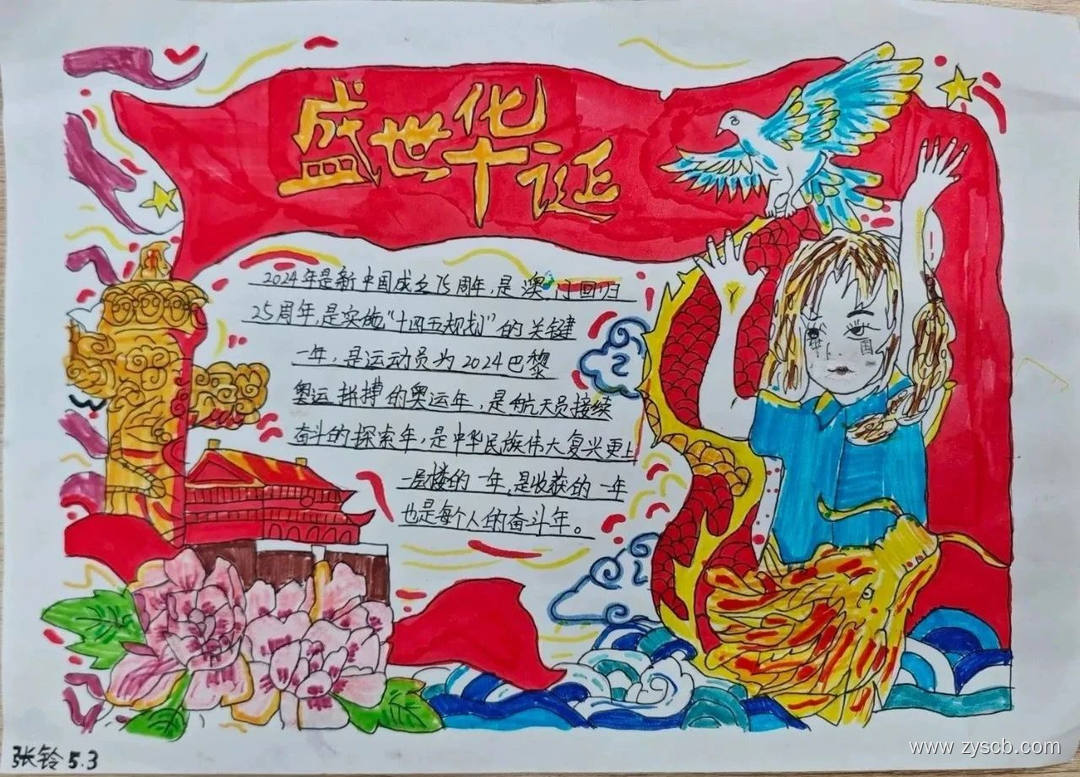 盛世华诞
2024年是新中国成立75周年,是澳门回归
25周年,是实施"十四五规划"的关键
一年,是运动员为2024巴黎
奥运拼搏的奥运年,是航天员接续
奋斗的探索年,是中华民族伟大复兴更上
一层楼的一年,是收获的一年
也是每个人的奋斗年。
张铃5.3
www.zyscb.com